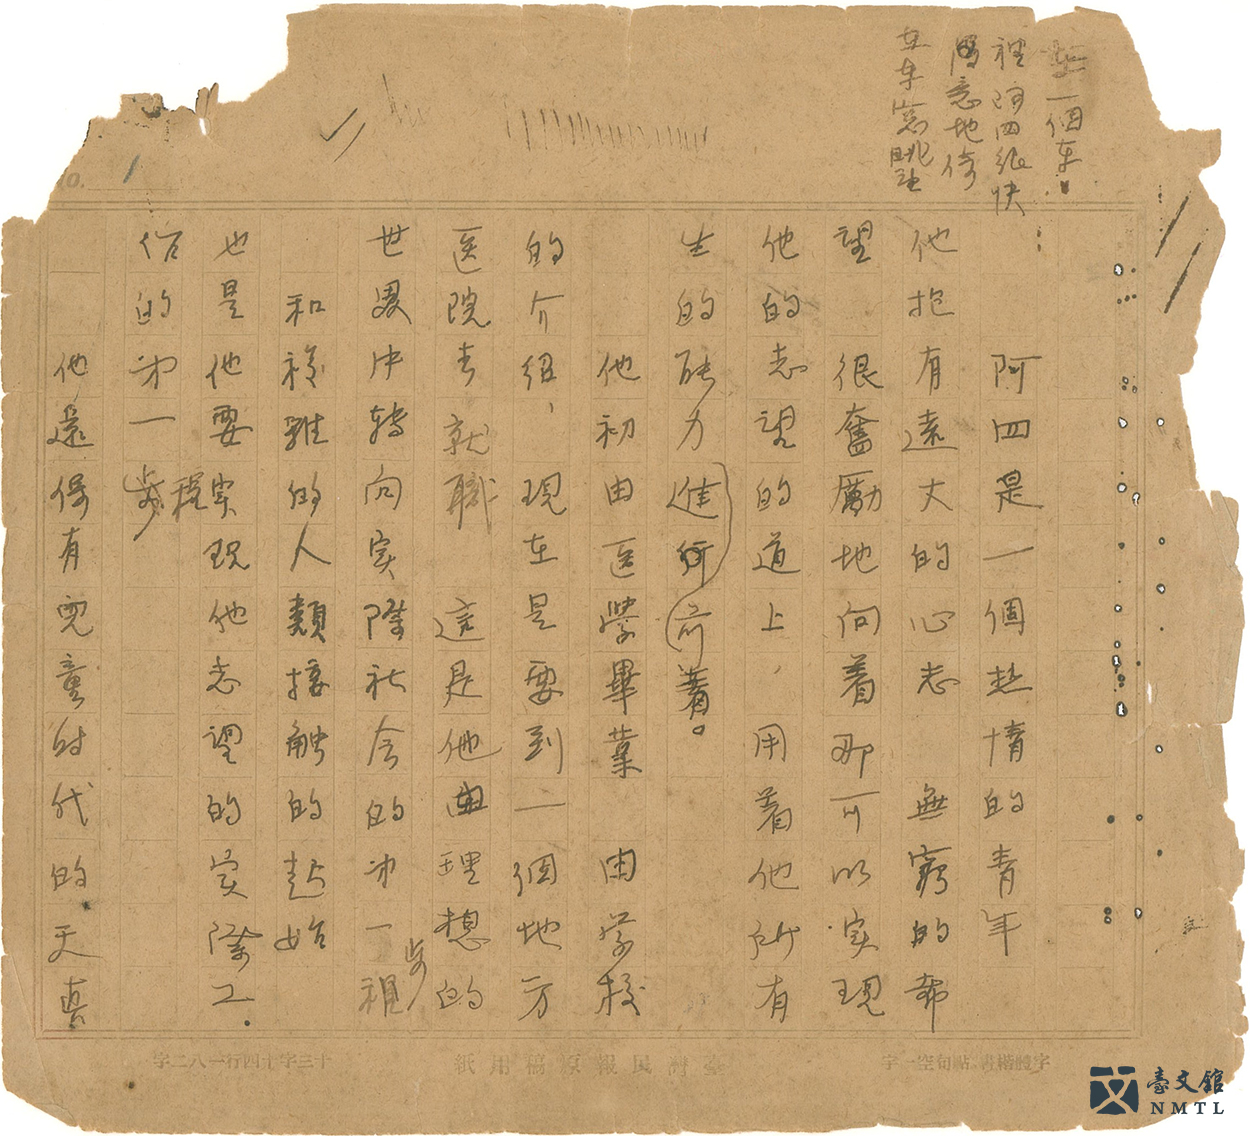 在一個車
裡 阿四很快
意地倚
在車窓眺
阿四是一個熱情的青年
他抱有遠大的心志 無窮的希
望 很奮勵地向着那可以實現
他的志望的道上，用着他所有
生的能力進行前着。
他初由医學畢業 由学校
的介紹，現在是要到一個地方
医院去就職 這是他由理想的
世界中轉向实際社会的第一步
和複雜的人類接觸的起始
也是他要实現他志望的实際工
作的第一步程
他還保有兒童時代的天真
No. 1
字體楷書・點句空一字
臺灣民報原稿用紙
十三字十四行一八二字
臺文館
NMTL